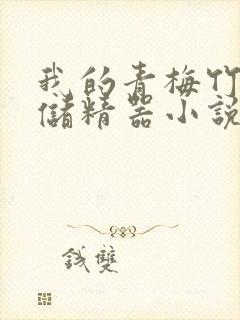 我的青梅竹
儲精器小説
錢雙